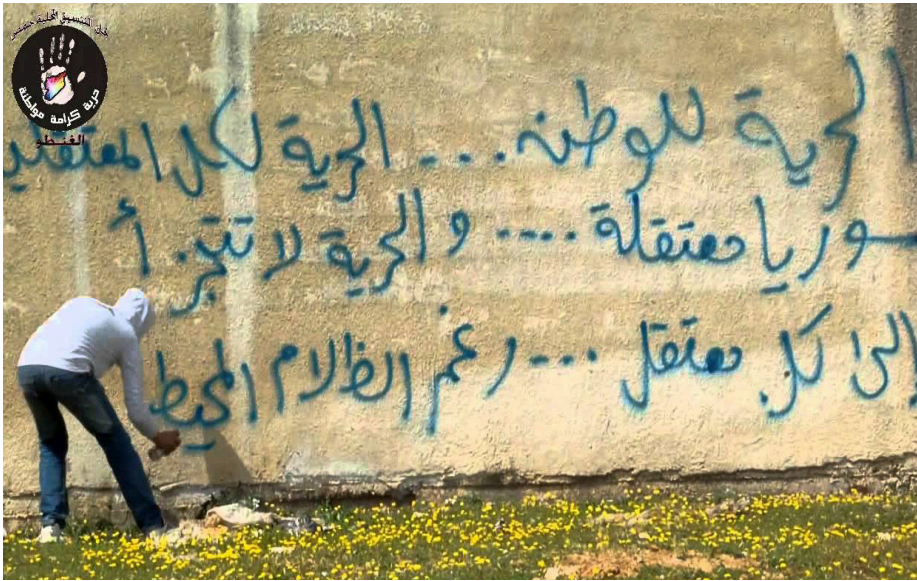 لجان التنسيق المحلية حمص
حرية كرامة مواطنة
الغنطو
الحرية للوطن .... الحرية لكل المعتقلين
سوريا معتقلة .... و الحرية لا تتجزأ
إلى كل معتقل .... رغم الظلام المحيط